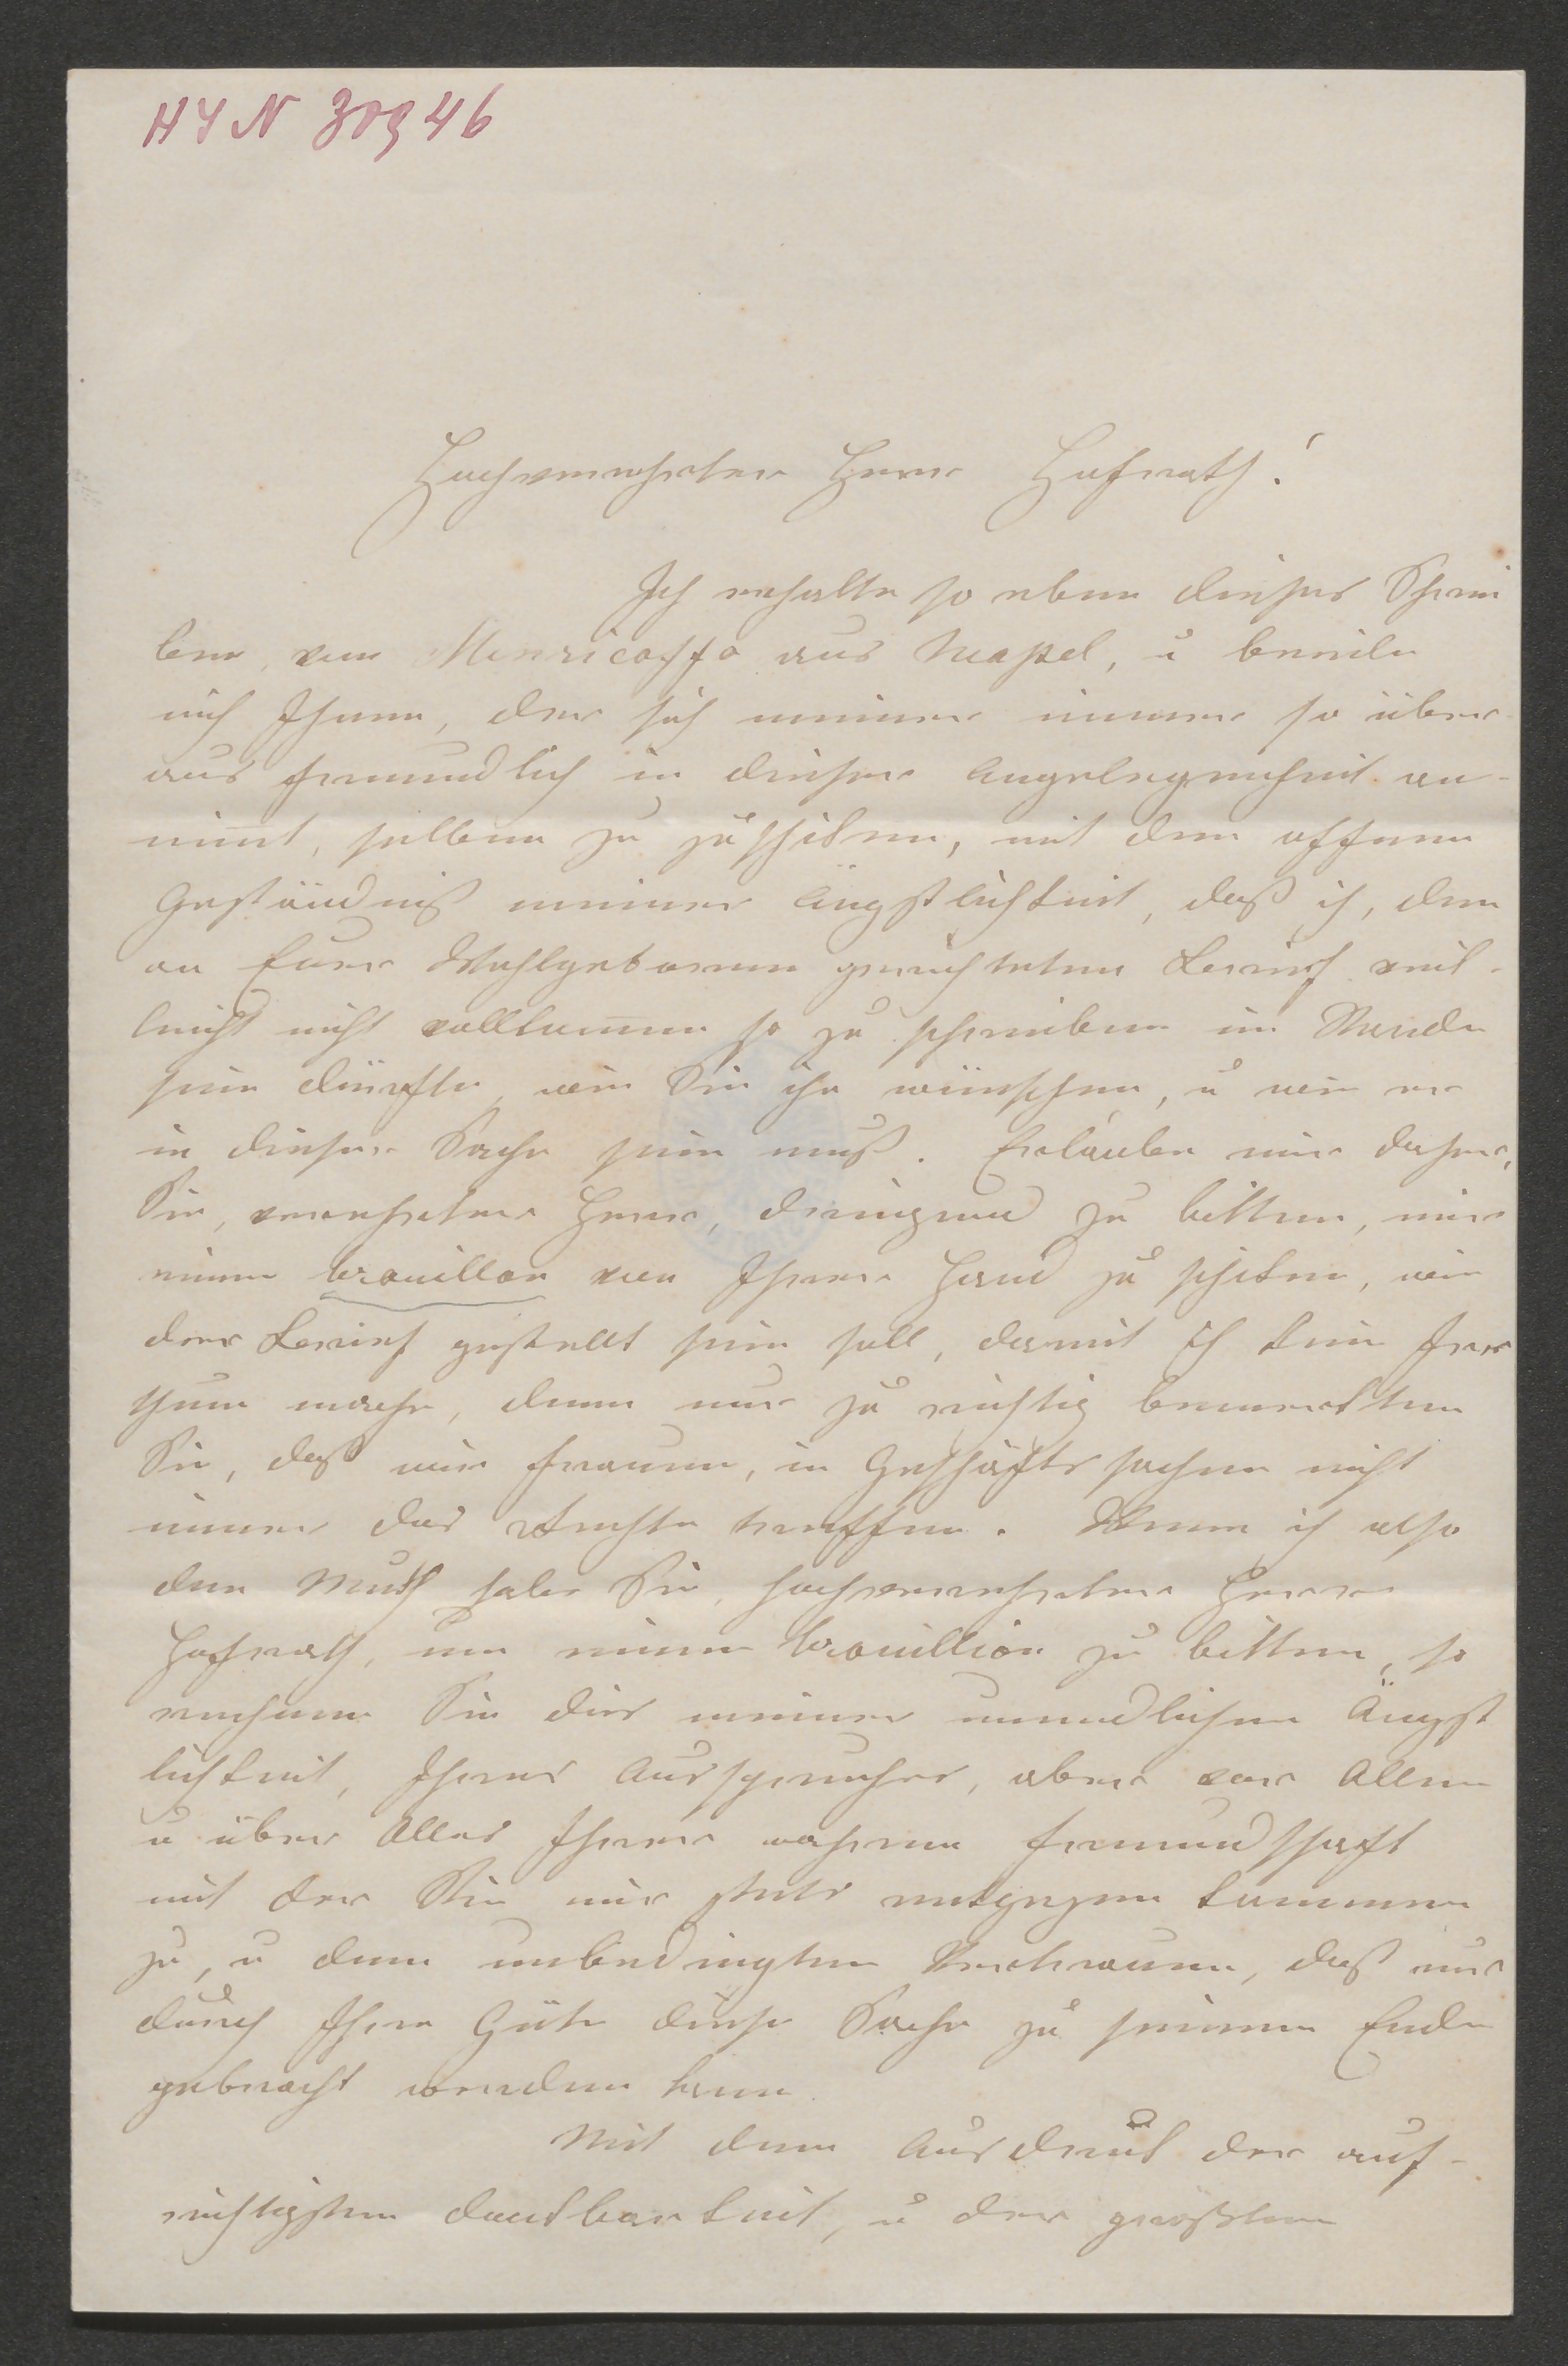 HYN 30946
Hochverehrter Herr Hofrath!
Ich erhalte so eben dieses Schrei
ben, von Menricoffo aus Neapel, u beeile
mich Ihnen, der sich meiner immer so über-
aus freundlich in dieser Angelegenheit an-
nimt, selben zu zuschiken, mit dem offenen
Geständniß meiner Ängstlichkeit, daß ich, den
an Euer Wohlgeboren gerichteten Brief viel-
leicht nicht vollkommen so zu schreiben im Stande
sein dürfte, wie Sie ihn wünschen, u wie er
in dieser Sache sein muß. Erlauben mir daher,
Sie, verehrter Herr, dringend zu bitten, mir
einen brouillon von Ihrer Hand zu schiken, wie
der Brief gestellt sein soll, damit ich kein Irr
thum mache, denn nur zu richtig bemerkten
Sie, daß wir Frauen, in Geschäfts sachen nicht
immer das Rechte treffen. Wenn ich also
den Muth habe Sie, hochverehrter Herr
Hofrath, um einen brouillion zu bitten, so
rechnen Sie dies meiner unendlichen Ängst
lichkeit, Ihres Ausspruches, aber vor Allem
u über Alles Ihrer wahren Freundschaft
mit der Sie mir stets entgegen kommen
zu, u dem unbedingten Vertrauen, daß nur
durch Ihre Güte diese Sache zu seinem Ende
gebracht werden kann.
Mit dem Ausdruk der auf-
richtigsten Dankbarkeit, u der größten